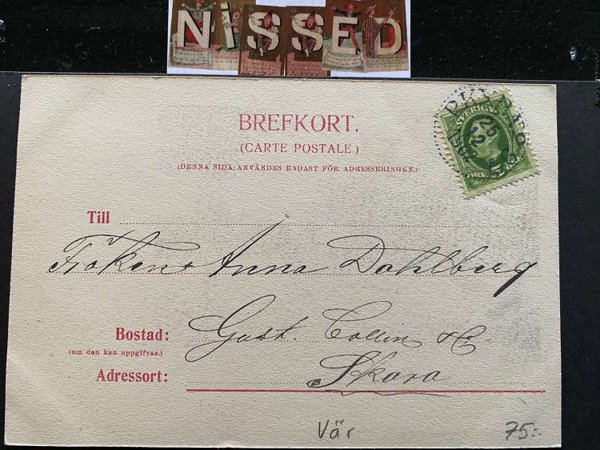 NiSSED
BREFKORT.
(CARTE POSTALE)
(DENNA SIDA ANVÄNDES ENDAST FÖR ADRESSERINGEN.)
SVERIGE
Till
Fröken Anna Dahlberg
Bostad:
Gust. Collin & C
(om den kan uppgifvas.)
Adressort:
Skara
Vär
75:-